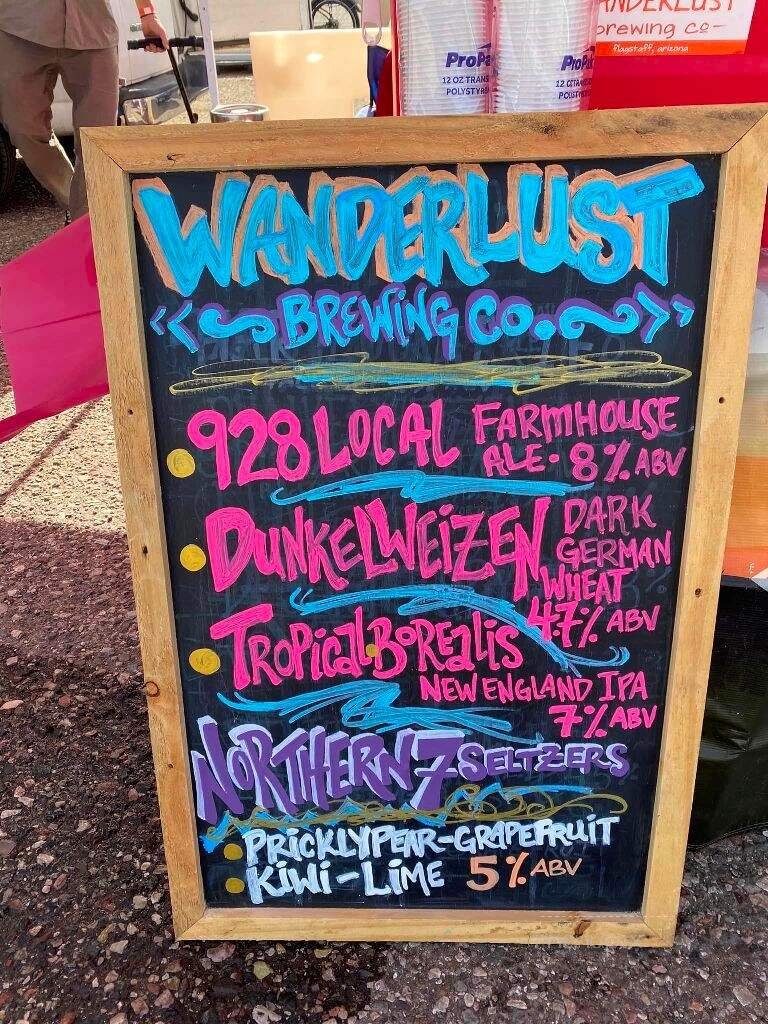 WANDERLUST
brewing co-
flagstaff, arizona
ProPa
12 OZ TRANS
POLYSTYR
ProPa
POLYSTY
WANDERLUST
BREWING CO.
928 LOCAL FARMHOUSE
ALE - 8% ABV
DUNKELWEIZEN DARK
GERMAN
WHEAT
4.7% ABV
TROPICAL BOREALIS
NEW ENGLAND IPA
7% ABV
NORTHERN 7 SELTZERS
PRICKLY PEAR - GRAPEFRUIT
KIWI - LIME 5% ABV